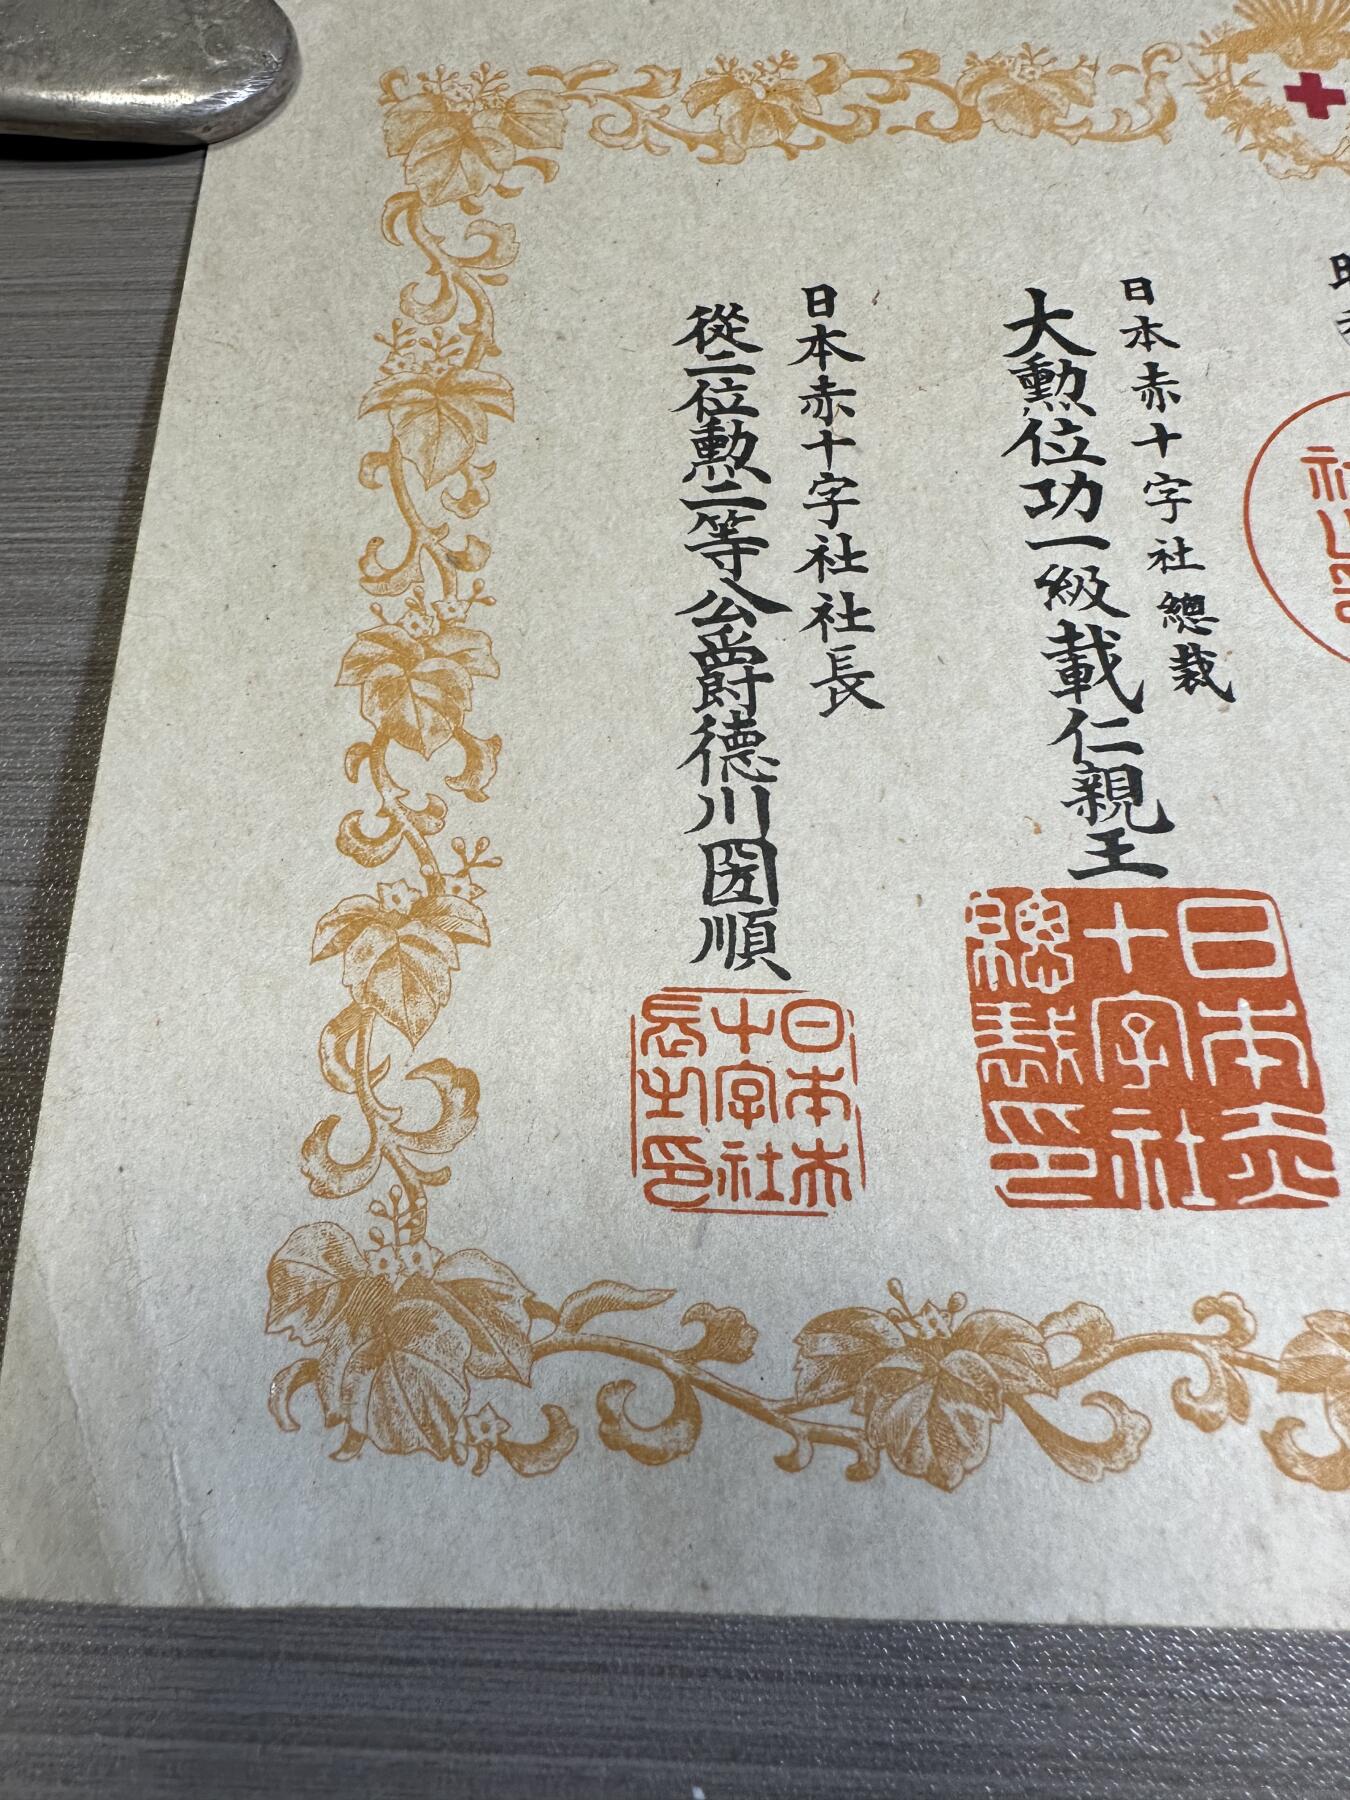 日本赤十字社總裁
大勲位功一級載仁親王
日本赤十字社總裁印
日本赤十字社社長
從二位勲二等公爵德川圀順
日本赤十字社長之印